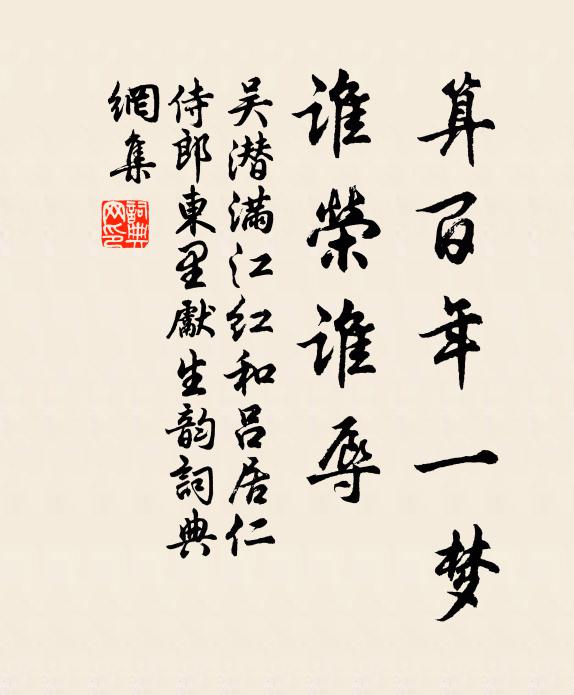 算百年一梦
谁荣谁辱
吴潜满江红和吕居仁
侍郎东里献生韵词典
网集
词典网印